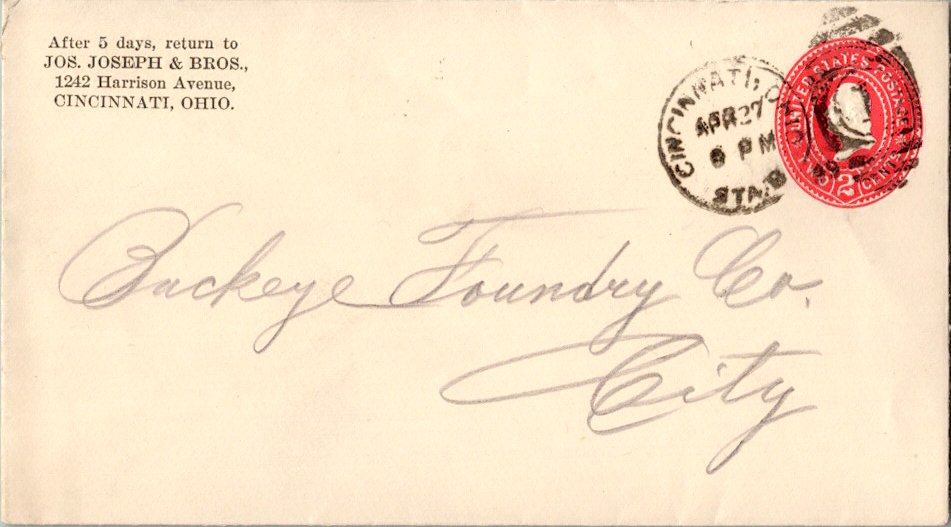 After 5 days, return to
JOS. JOSEPH & BROS.,
1242 Harrison Avenue,
CINCINNATI, OHIO.
CINCINNATI, O.
APR 27
6 PM
STA.
UNITED STATES POSTAGE
TWO 2 CENTS
Buckeye Foundry Co.
City